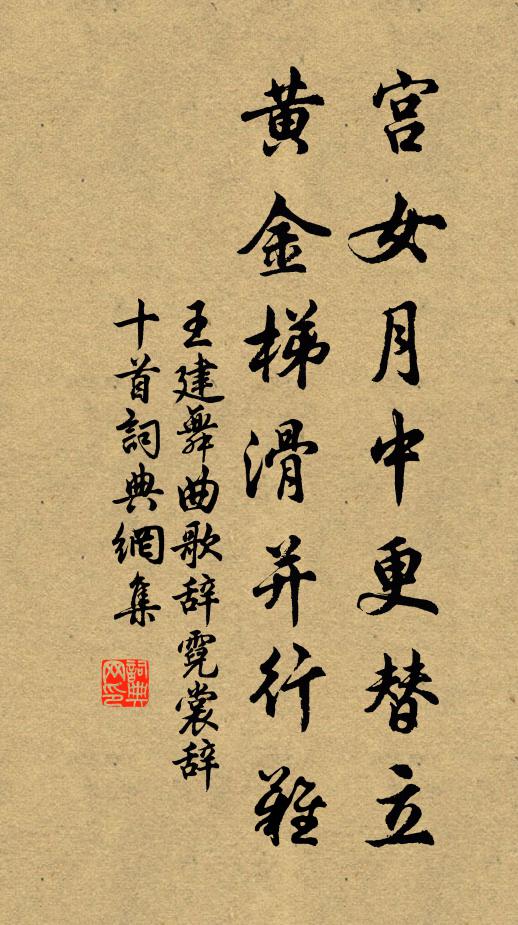 宫女月中更替立
黄金梯滑并行難
王建舞曲歌辞霓裳辞
十首詞典網集
詞典网印